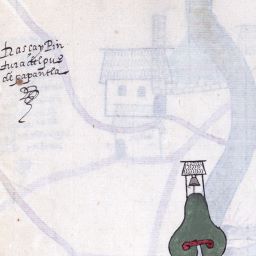 tras cay Pin
tura del pue
de papantla